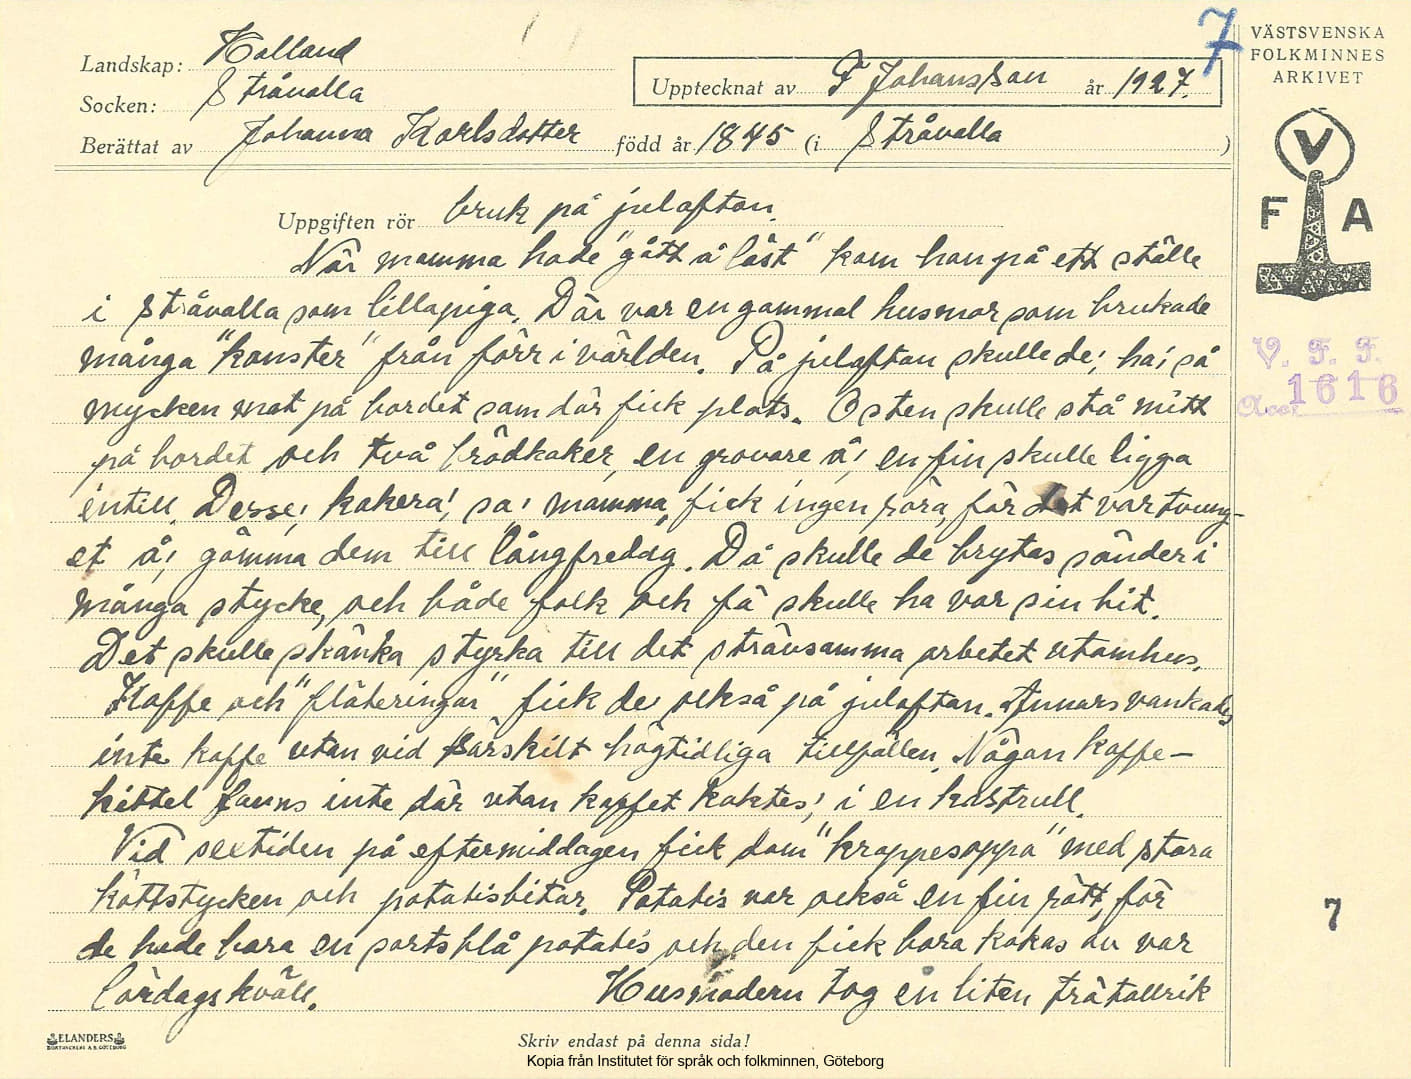 7
VÄSTSVENSKA
FOLKMINNES
ARKIVET
Landskap: Halland
Socken: Stråvalla
Upptecknat av F Johansson år 1927.
Berättat av Johanna Karlsdotter född år 1845 (i Stråvalla)
V
F A
V. F. F.
Acc. 1616
Uppgiften rör bruk på julaftan.
När mamma hade "gått å läst" kom hon på ett ställe
i Stråvalla som lillapiga. Där var en gammal husmor som brukade
många "konster" från förr i världen. På julaftan skulle de' ha' så
mycken mat på bordet som där fick plats. Osten skulle stå mitt
på bordet och två brödkaker, en grovare å' en fin skulle ligga
intill. Desse' kakera', sa' mamma, fick ingen röra, för det var tvung-
et å' gömma dem till långfredag. Då skulle de brytas sönder i
många stycke, och både folk och fä skulle ha var sin bit.
Det skulle skänka styrka till det strävsamma arbetet utomhus.
Kaffe och "fläteringar" fick de också på julaftan. Annars vankades
inte kaffe utan vid särskilt högtidliga tillfällen. Någon kaffe-
kittel fanns inte där utan kaffet koktes' i en kastrull.
Vid sextiden på eftermiddagen fick dom "krappesoppa" med stora
köttstycken och potatisbitar. Potatis var också en fin rätt, för
de hade bara en sorts blå potatis och den fick bara kokas av var
lördagskväll. Husmodern tog en liten trätallrik
7
ELANDERS
BOKTRYCKERI A.B. GÖTEBORG
Skriv endast på denna sida!
Kopia från Institutet för språk och folkminnen, Göteborg